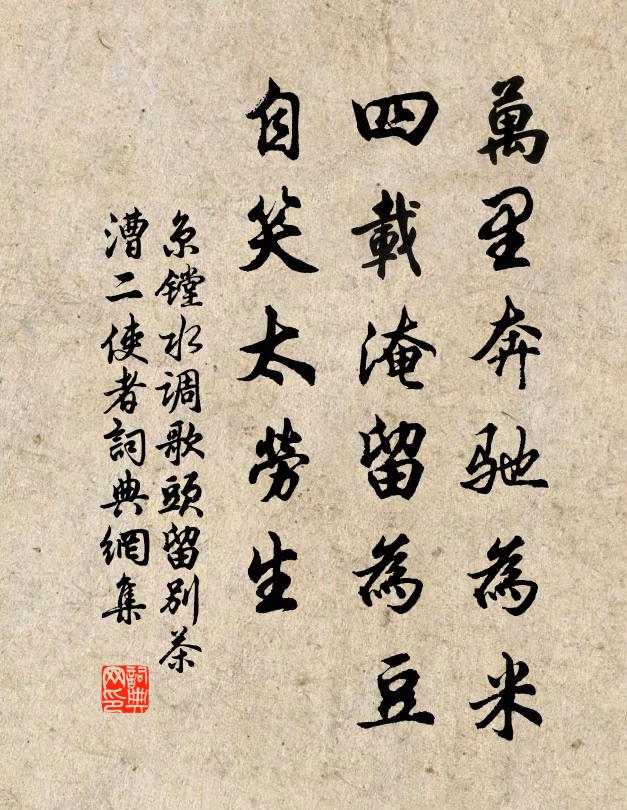 萬里奔驰為米
四載淹留為豆
自笑太勞生
京镗水调歌頭留别茶
漕二使者詞典網集
詞典网印